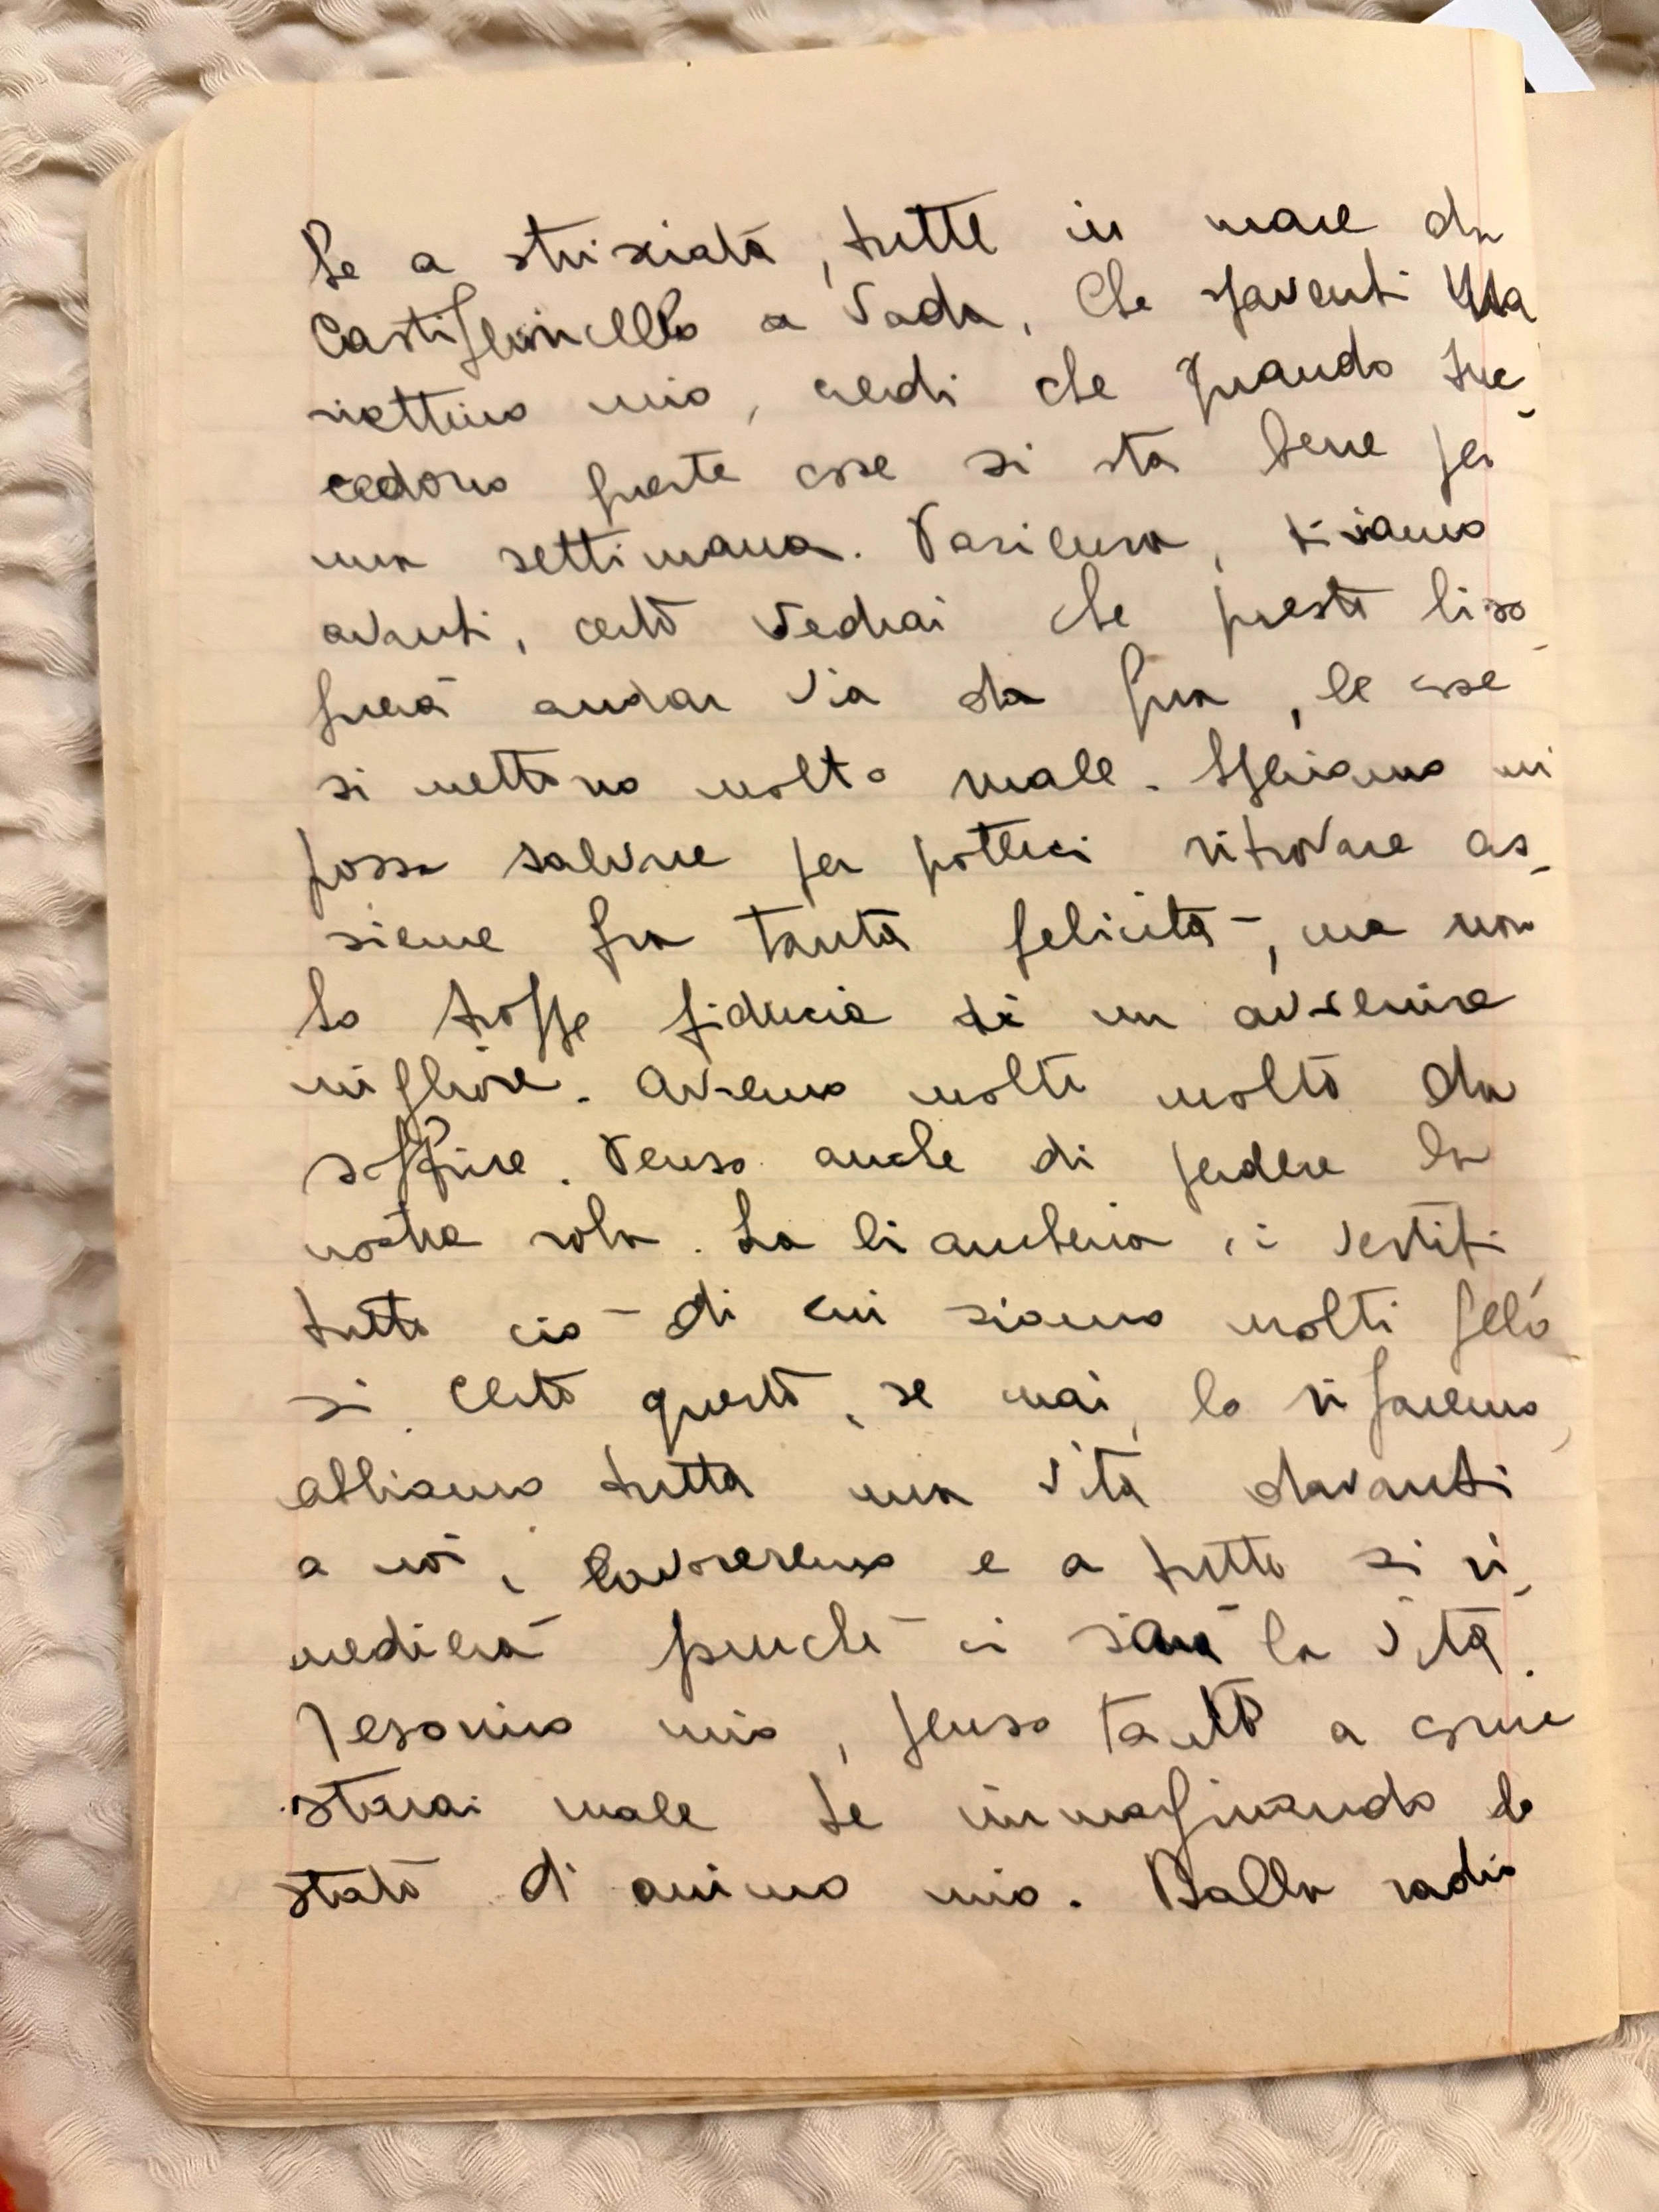 be a strisciata, tutte in mare da
Castiglioncello a Vada. Che spaventi Ma
riettino mio, credi che quando suc-
cedono queste cose si sta bene per
una settimana. Pasienza, tiriamo
avanti, certo vedrai che presto biso-
gnerà andar via da qua, le cose
si mettono molto male. Speriamo mi
possa salvare per potterci ritrovare as-
sieme fra tanta felicità, ma non
ho troppe fiducia di un avvenire
migliore. Avremo molti molto da
soffrire. Penso anche di perdere la
nostra roba. La biancheria, i vestiti
tutto ciò di cui siamo molti gelo
si. Certo questo, se mai, lo rifaremo,
abbiamo tutta una vita davanti
a noi, lavoreremo e a tutto si ri-
medierà purchè ci sarà la vita.
Tesorino mio, penso tanto a come
starai male te immaginando lo
stato di animo mio. Dalla radio